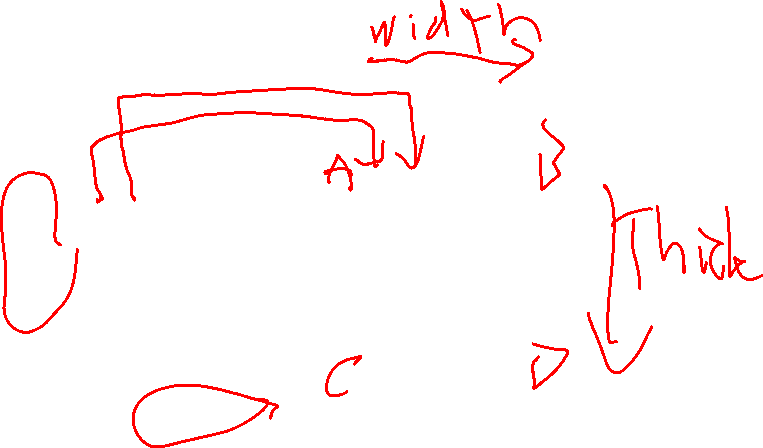 width
A B
Thick
C D